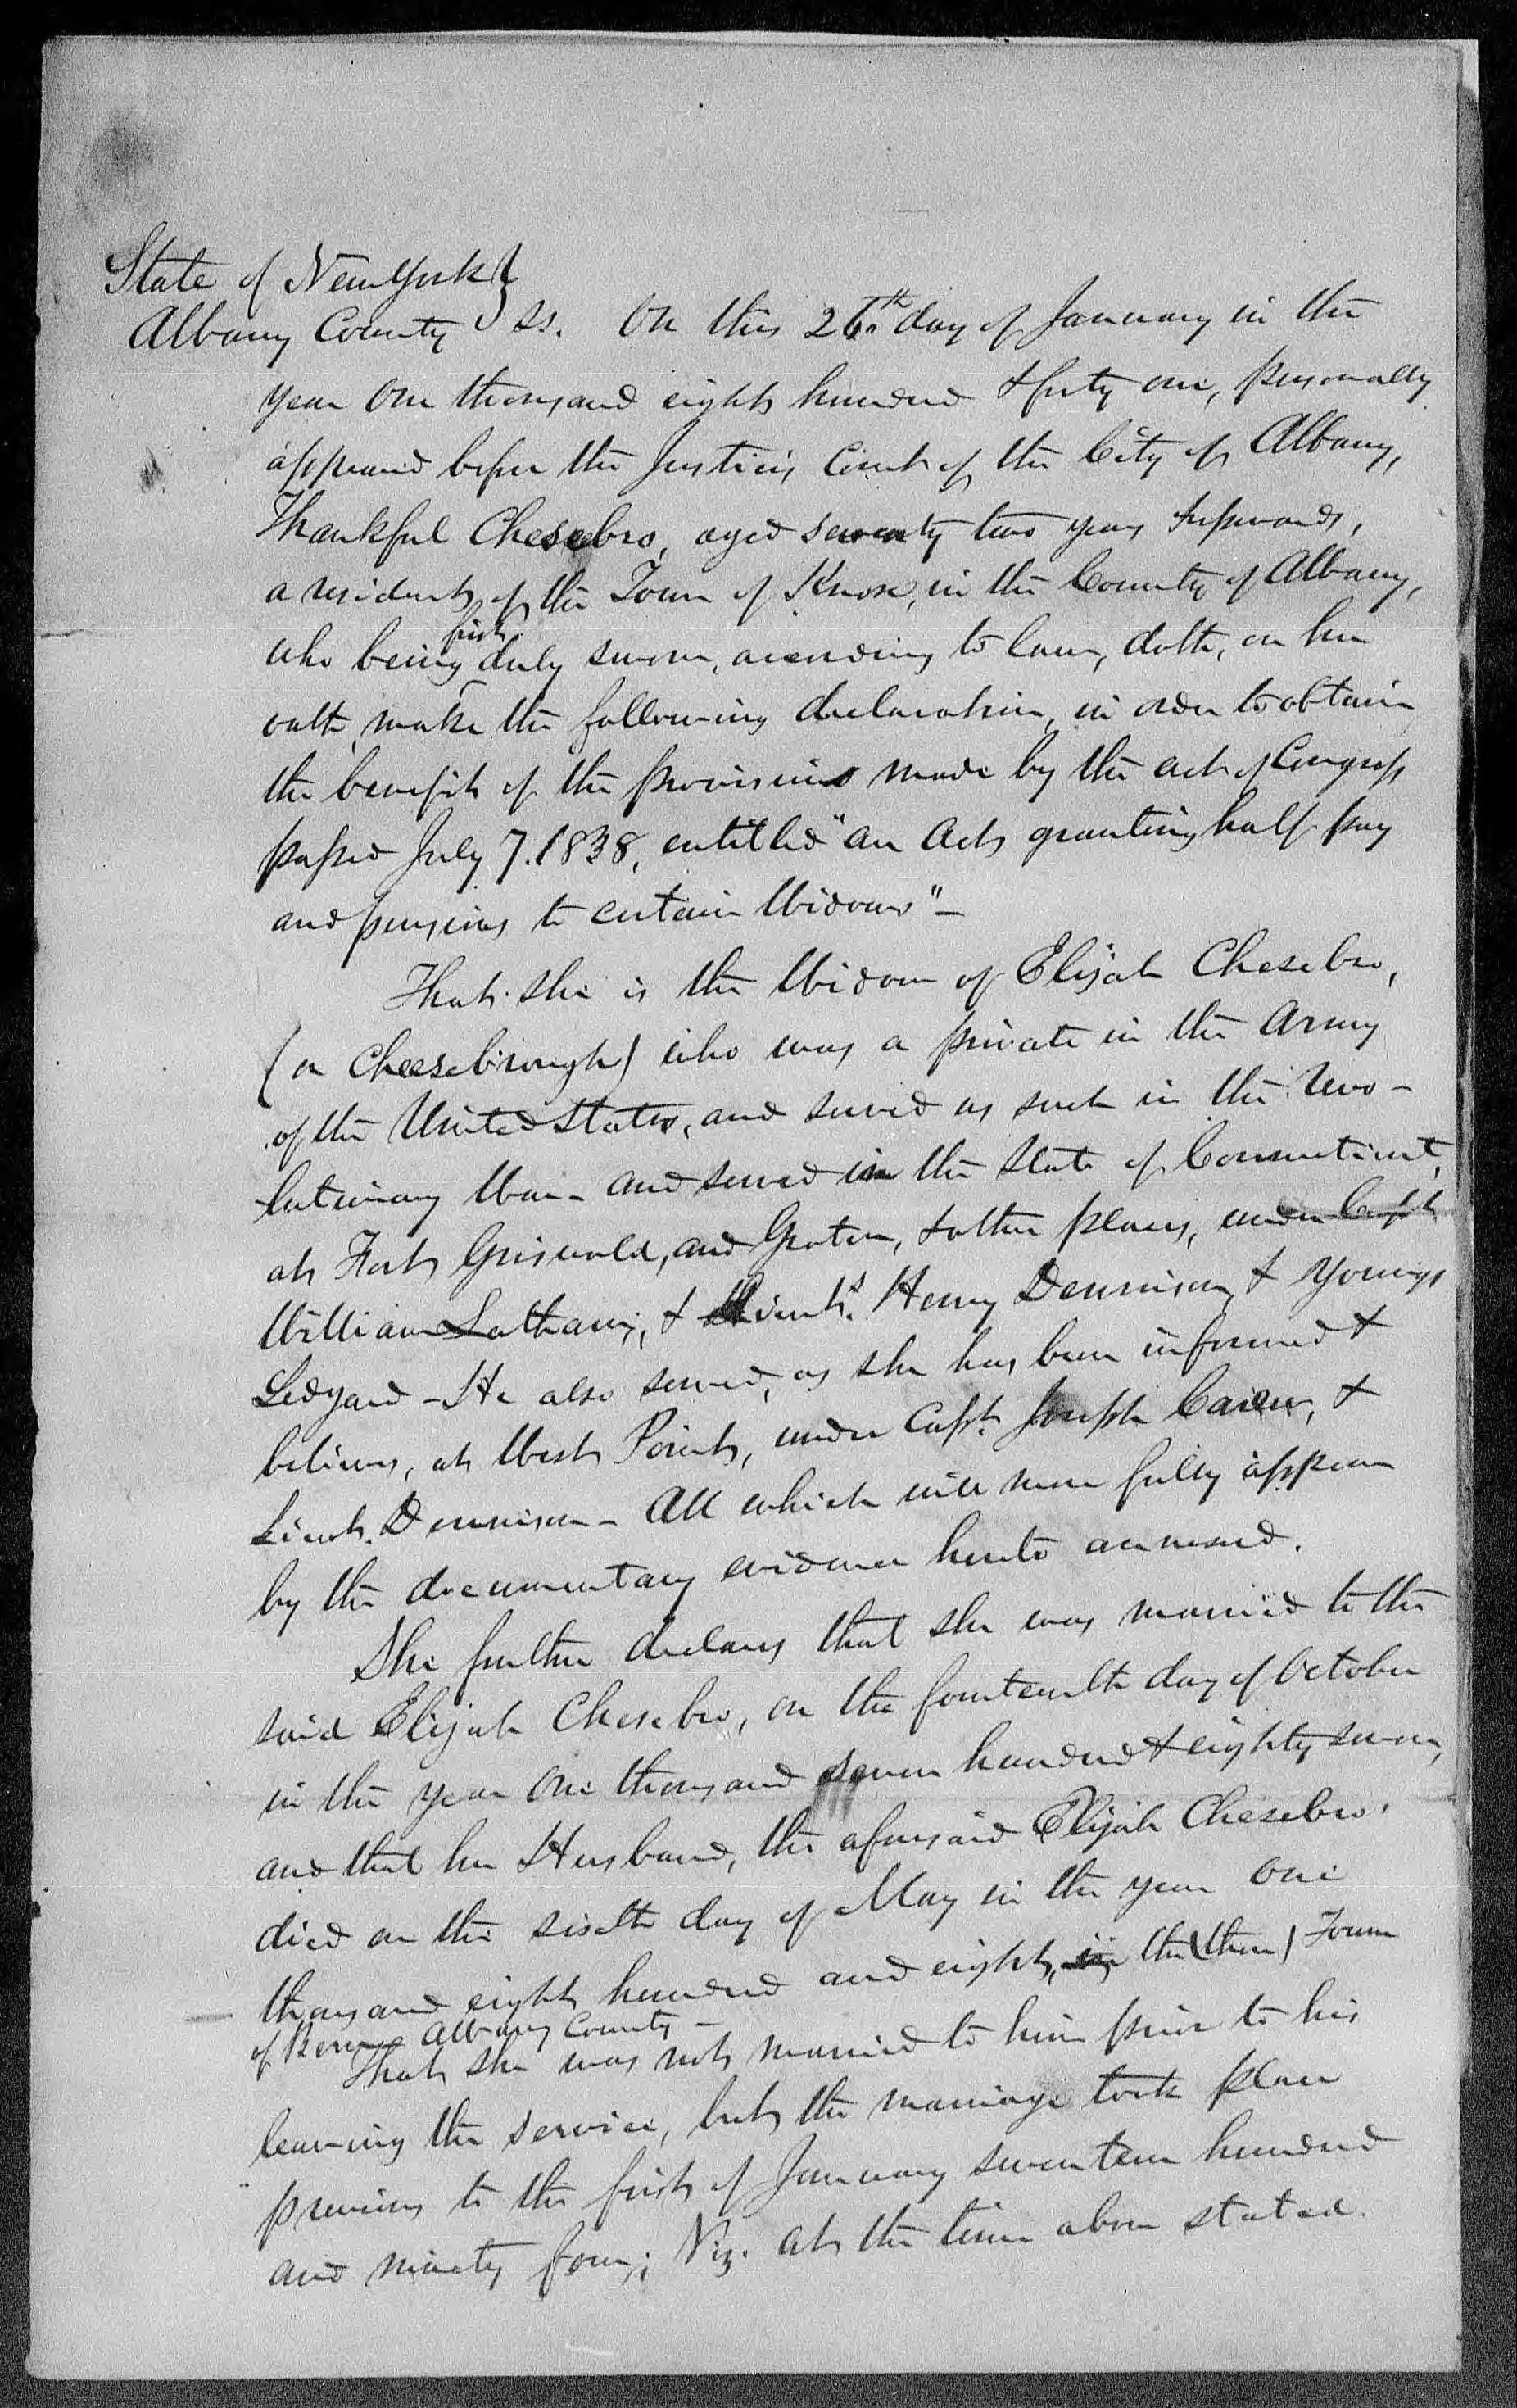 State of New York }
Albany County } ss. On this 26th day of January in the
year One thousand eight hundred & forty one, personally
appeared before the Justices Court of the City of Albany,
Thankful Chesebro, aged seventy two years & upwards,
a resident of the Town of Knox, in the County of Albany,
who being first duly sworn, according to law, doth, on her
oath, make the following declaration, in order to obtain
the benefit of the provisions made by the act of Congress
passed July 7. 1838, entitled "An Act granting half pay
and pensions to certain Widows" -
That she is the Widow of Elijah Chesebro,
(or Cheesebrough) who was a private in the Army
of the United States, and served as such in the Revo-
lutionary War - and served in the State of Connecticut,
at Fort Griswold, and Groton, & other places, under Capt
William Latham, & Lieuts. Henry Dennison, & Youngs
Ledyard - He also served, as she has been informed &
believes, at West Point, under Capt. Joseph Carew, &
Lieut. Dennison - All which will more fully appear
by the documentary evidence hereto annexed.
She further declares that she was married to the
said Elijah Chesebro, on the fourteenth day of October
in the year One thousand seven hundred & eighty seven,
and that her Husband, the aforesaid Elijah Chesebro,
died on the sixth day of May in the year One
thousand eight hundred and eight, in the (then) Town
of Berne Albany County -
That she was not married to him prior to his
leaving the service, but the marriage took place
previous to the first of January seventeen hundred
and ninety four; Viz. at the time above stated.